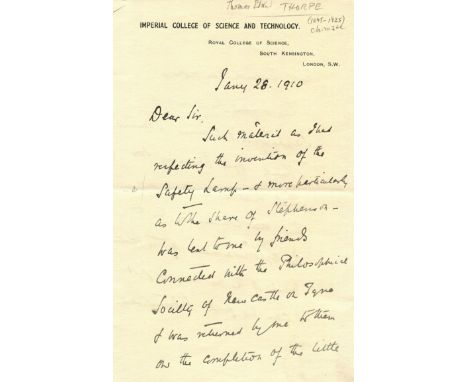 Thomas Edw THORPE
(1845-1925)
chemist
IMPERIAL COLLEGE OF SCIENCE AND TECHNOLOGY.
ROYAL COLLEGE OF SCIENCE,
SOUTH KENSINGTON,
LONDON, S.W.
Jany 28. 1910
Dear Sir,
Such material as I had
respecting the invention of the
Safety Lamp - & more particularly
as to the share of Stephenson -
was lent to me by friends
connected with the Philosophical
Society of Newcastle on Tyne
& was returned by me to them
on the completion of the little